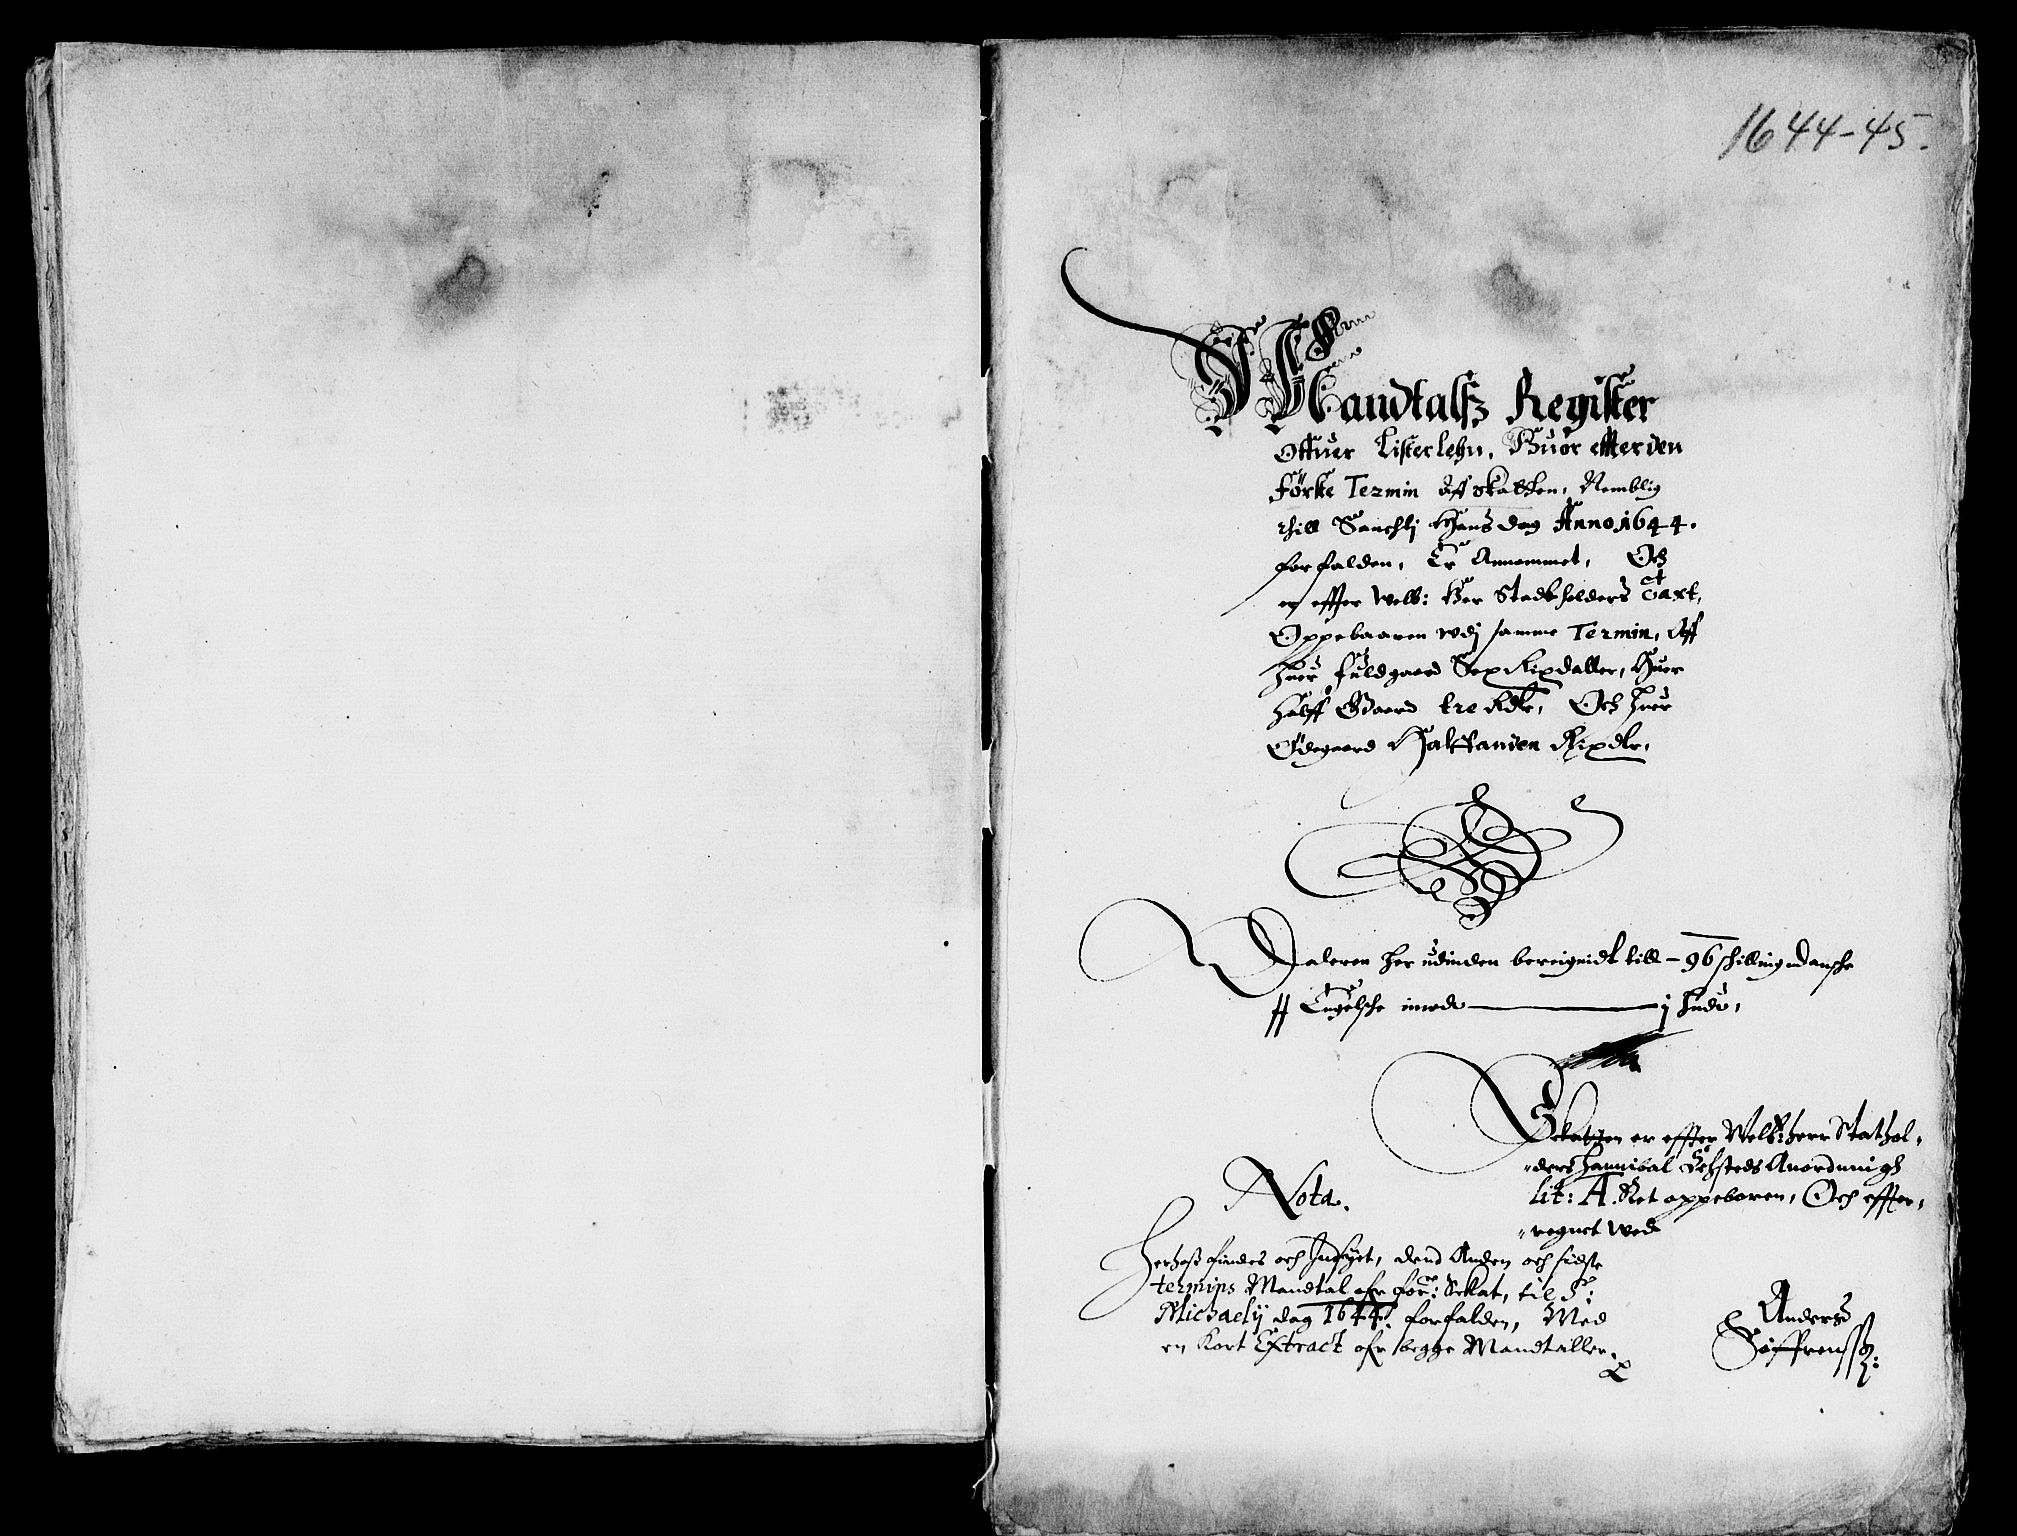 1644-45.
Mandtals Register
Offuer Listerlehn, Huor effter den
Første Termin Aff skatten, Nemblig
thill Sancktj Hans dag Anno 1644.
forfalden, Er Annammet, Och
er effter Welb: Her Stadtholders Taxt,
Oppebaaren udj samme Termin, Aff
huer fuldgaard Sex Rixdaller, Huer
halff Gaard tre Rdr, Och huer
Ødegaard Halffanden Rixdlr,
Daleren her udinden beregnidt till - 96 schilling dansche
Engelsche j hud,
Skatten er effter Welb: herr Stathol-
ders Hannibal Sehsteds Anordningh
lit: A. Ret oppeboren, Och effter-
regnet wed
Anders
Søffrenss:
Nota.
Herhoß findes och Indhyet, dend Anden och sidste
termins Mandtal ofr for: Skat, til S:
Michaelij dag 1644. forfalden, Med
en Kort Extract ofr begge Mandtaller.